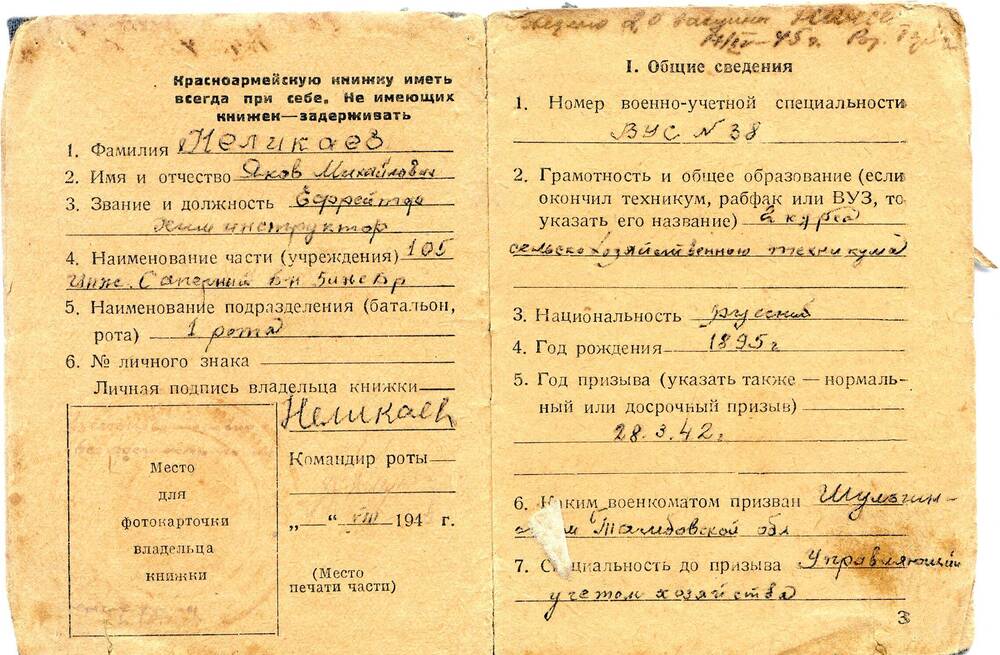 Красноармейскую книжку иметь
всегда при себе. Не имеющих
книжек—задерживать
1. Фамилия Неликаев
2. Имя и отчество Яков Михайлович
3. Звание и должность Ефрейтор
Химинструктор
4. Наименование части (учреждения) 105
Инж. Саперный б-н 5инж бр
5. Наименование подразделения (батальон,
рота) 1 рота
6. № личного знака
Личная подпись владельца книжки
Неликаев
Место
для
фотокарточки
владельца
книжки
Командир роты
„—“ VIII 194 г.
(Место
печати части)
2,0 вакцина
45 г.
I. Общие сведения
1. Номер военно-учетной специальности
ВУС N 38
2. Грамотность и общее образование (если
окончил техникум, рабфак или ВУЗ, то
указать его название) 2 курса
сельскохозяйственного техникума
3. Национальность русский
4. Год рождения 1895 г
5. Год призыва (указать также — нормаль-
ный или досрочный призыв)
28.3.42 г
6. Каким военкоматом призван Шульгин-
Тамбовской обл
7. Специальность до призыва Управляющий
учетом хозяйства
3